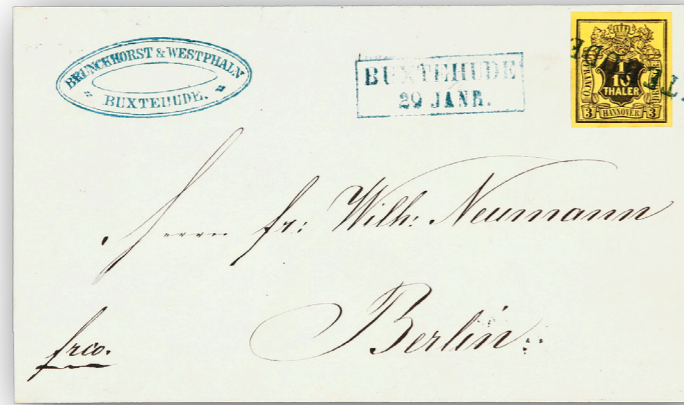 BRUNCKHORST & WESTPHALN
BUXTEHUDE.
BUXTEHUDE
29 JANR.
FRANCO
1
15
THALER
3 HANNOVER 3
Herrn Fr: Wilh: Neumann
Berlin.
frco.